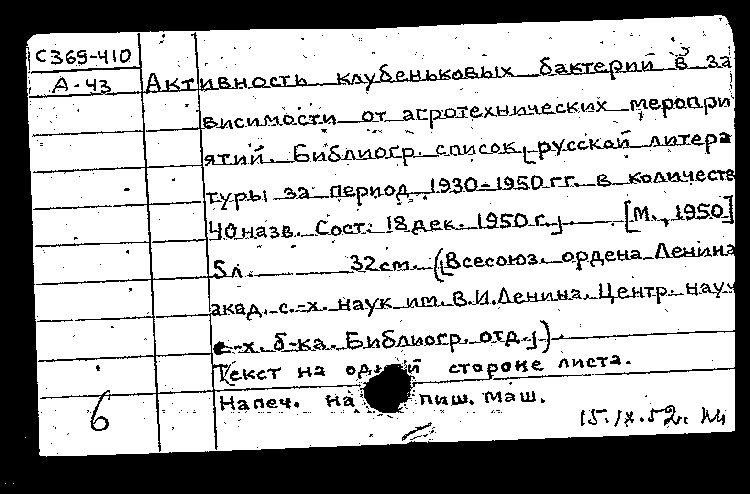 С365-410
А-43 Активность клубеньковых бактерий в за
висимости от агротехнических меропри
ятий. Библиогр. список [русской литера
туры за период 1930-1950 гг. в количеств
40 назв. Сост. 18 дек. 1950 г.]. [М., 1950]
5 л. 32 см. (Всесоюз. ордена Ленина
акад. с.-х. наук им. В.И.Ленина. Центр. науч
с.-х. б-ка. Библиогр. отд.])
Текст на одной стороне листа.
Напеч. на пиш. маш.
6
15.IX.52г.